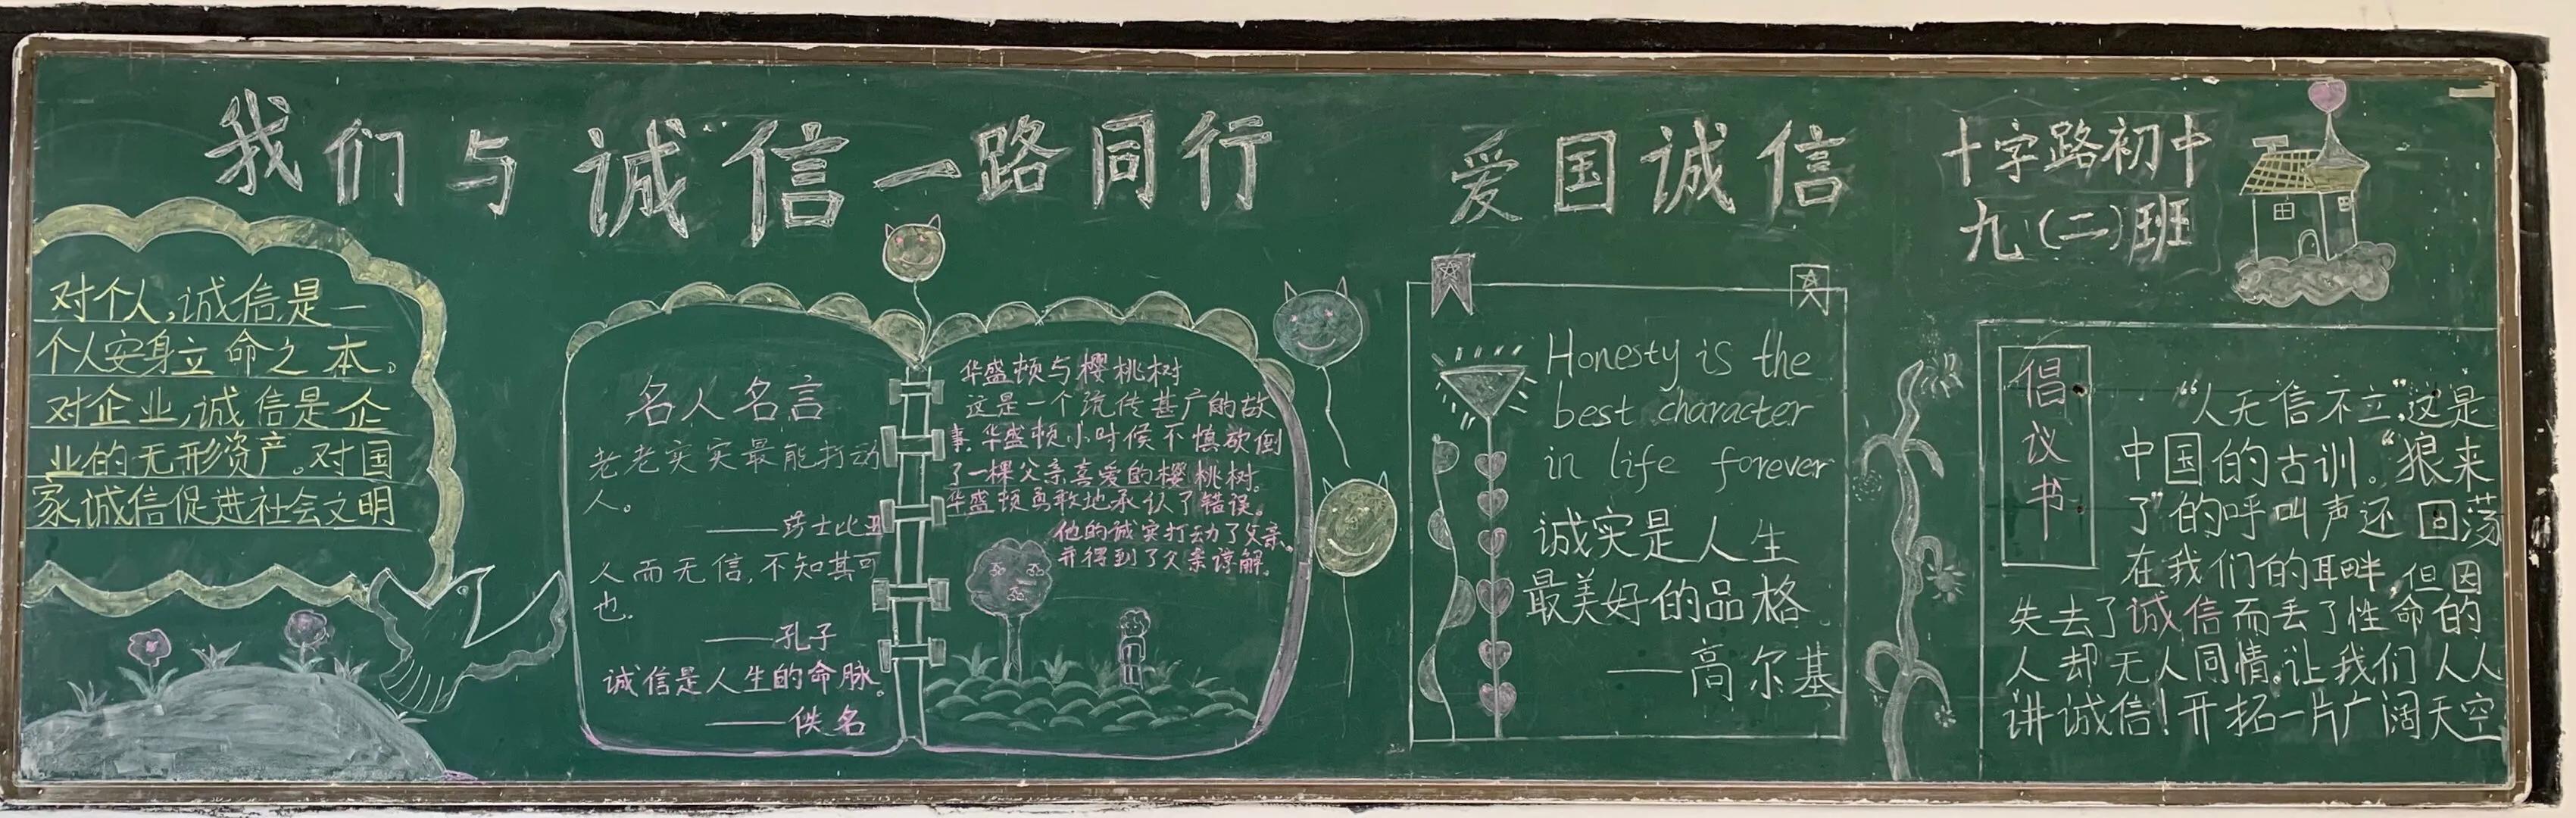 我们与诚信一路同行
爱国诚信
十字路初中
九(二)班
对个人,诚信是一
个人安身立命之本。
对企业,诚信是企
业的无形资产。对国
家,诚信促进社会文明
名人名言
老老实实最能打动
人。
——莎士比亚
人而无信,不知其可
也。
——孔子
诚信是人生的命脉。
——佚名
华盛顿与樱桃树
这是一个流传甚广的故
事.华盛顿小时候不慎砍倒
了一棵父亲喜爱的樱桃树。
华盛顿勇敢地承认了错误。
他的诚实打动了父亲。
并得到了父亲谅解.
Honesty is the
best character
in life forever
诚实是人生
最美好的品格
——高尔基
倡议书
“人无信不立”,这是
中国的古训。“狼来
了”的呼叫声还回荡
在我们的耳畔,但因
失去了诚信而丢了性命的
人却无人同情.让我们人人
讲诚信!开拓一片广阔天空